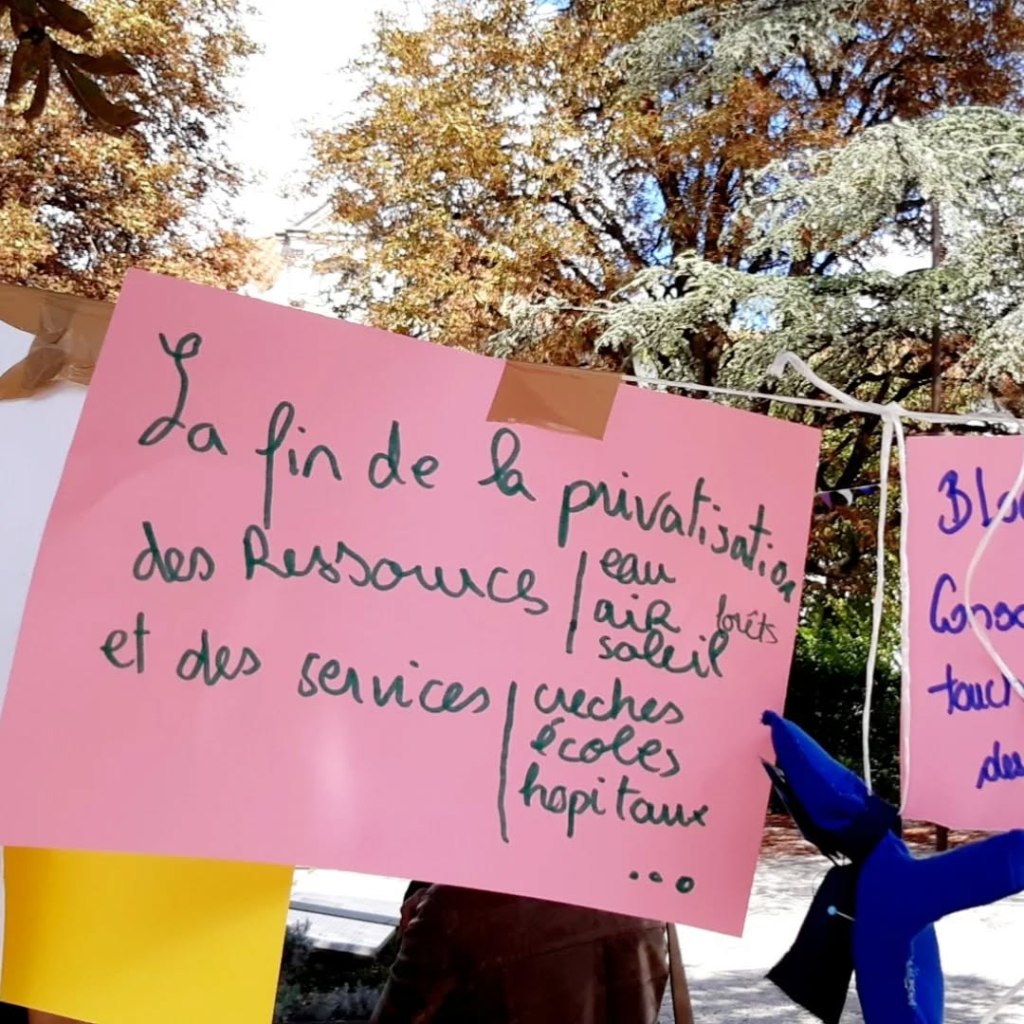 La fin de la privatisation
des Ressources | eau
air forêts
soleil
et des services | crèches
écoles
hopitaux
...
des